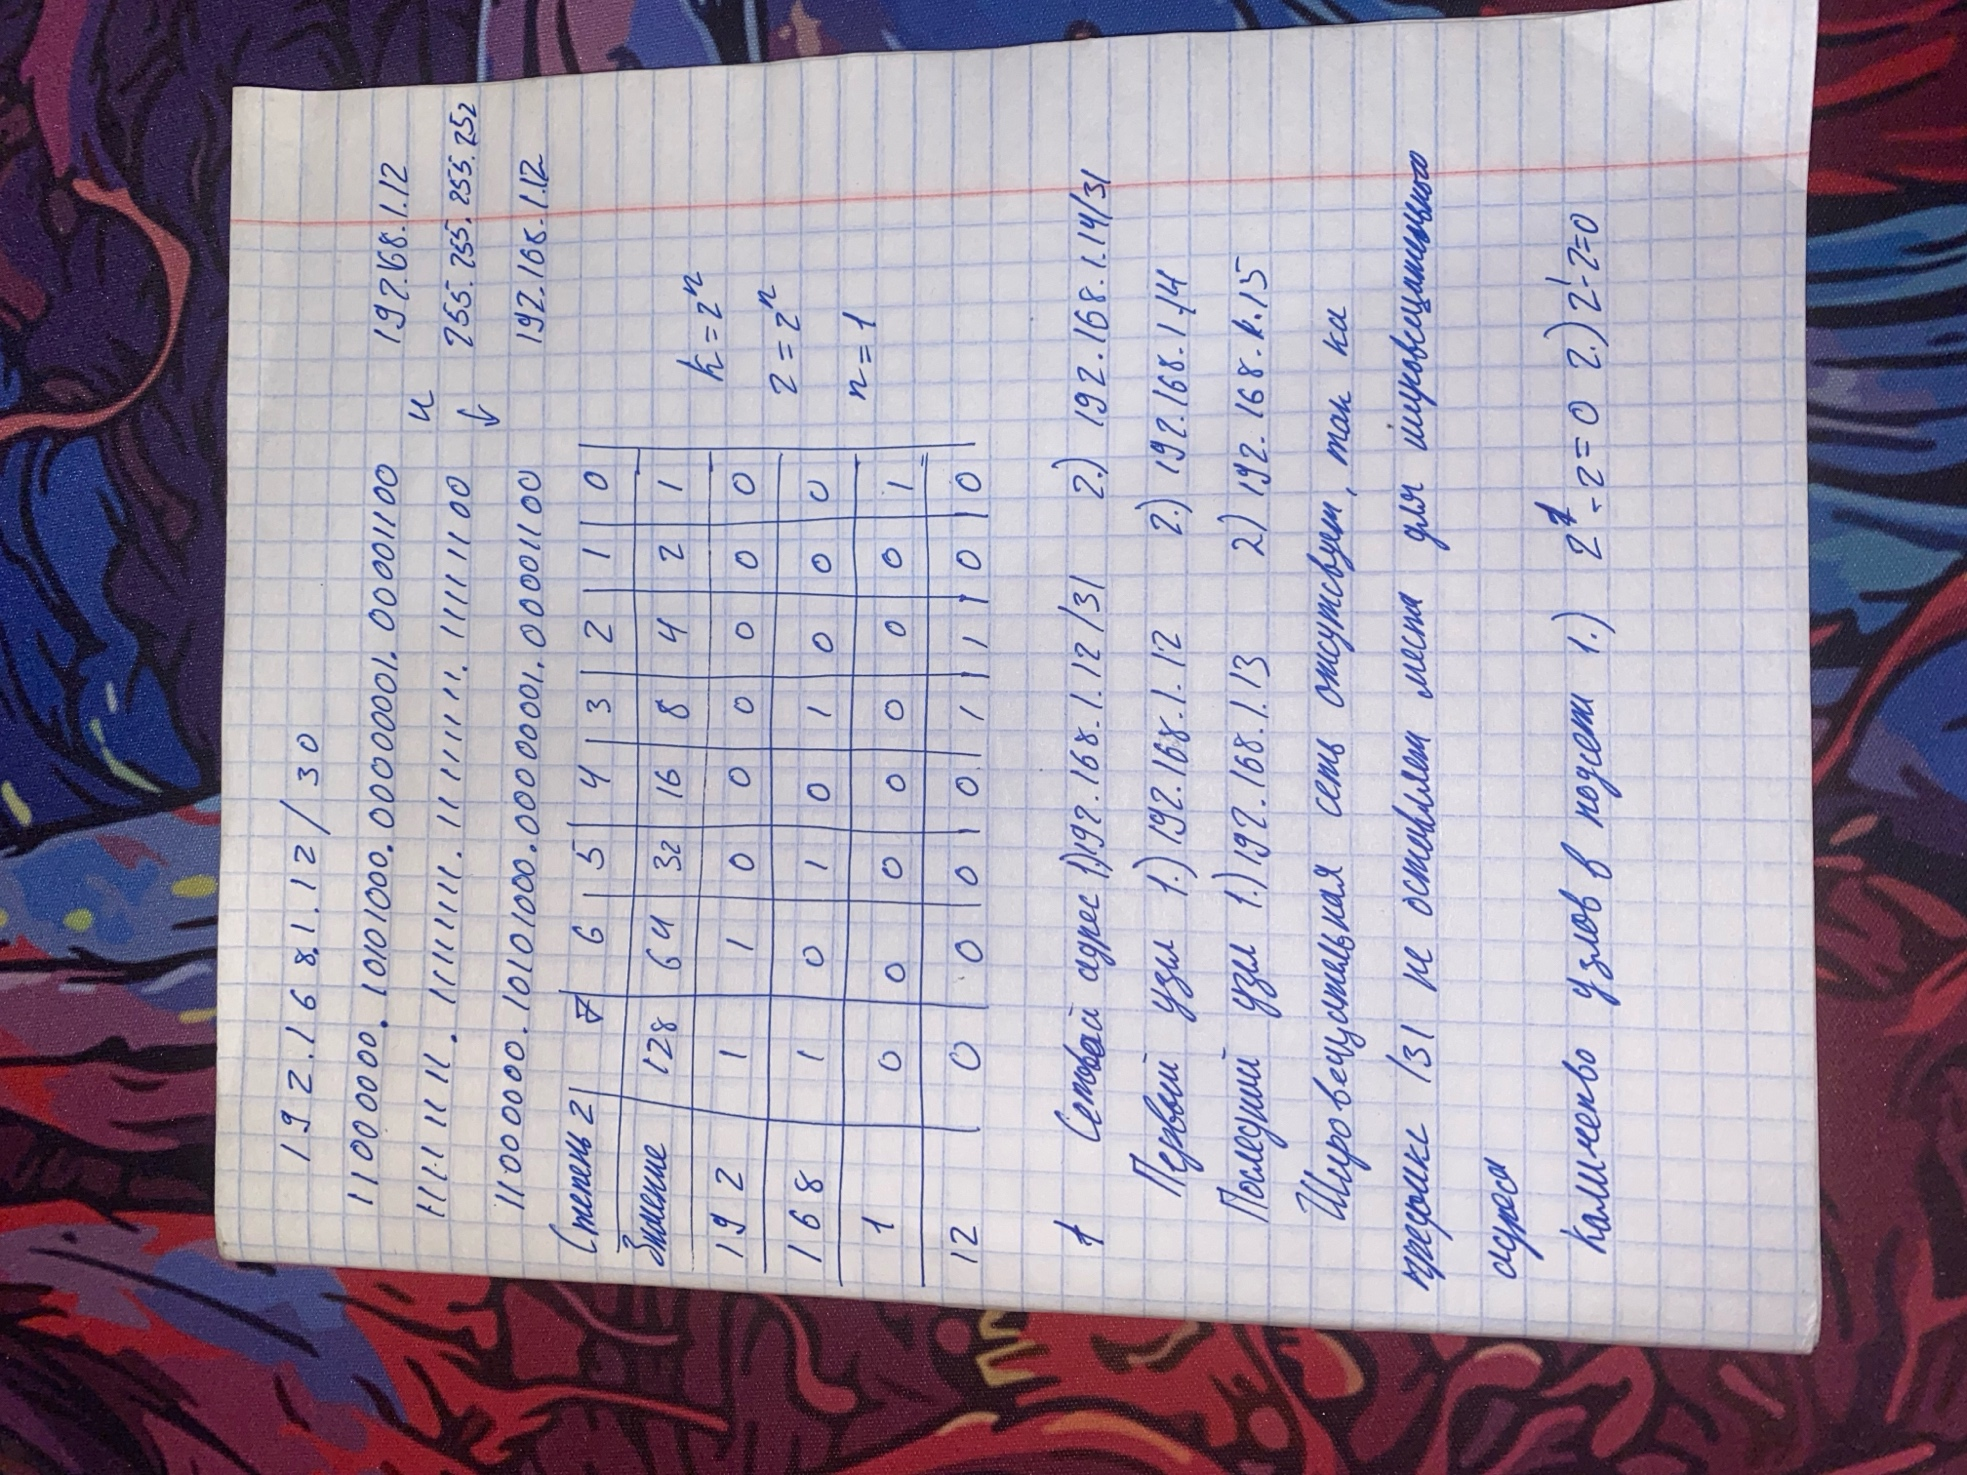 192.168.1.12/30
11000000.10101000.00000001.00001100 192.168.1.12
и
11111111.11111111.11111111.11111100 255.255.255.252
↓
11000000.10101000.00000001.00001100 192.168.1.12
Степень 2 | 7 | 6 | 5 | 4 | 3 | 2 | 1 | 0
Значение 128 64 32 16 8 4 2 1
192 1 1 0 0 0 0 0 0
168 1 0 1 0 1 0 0 0
1 0 0 0 0 0 0 0 1
12 0 0 0 0 1 1 0 0
k=2ⁿ
2=2ⁿ
n=1
Сетевой адрес 1)192.168.1.12/31 2.) 192.168.1.14/31
Первый узел 1.) 192.168.1.12 2.) 192.168.1.14
Последний узел 1.) 192.168.1.13 2) 192.168.1.15
Шировещательная сеть отсутсвует, так ка
префикс /31 не оставляет места для шировещательного
адреса
Количество узлов в подсети 1.) 2¹-2=0 2.) 2¹-2=0